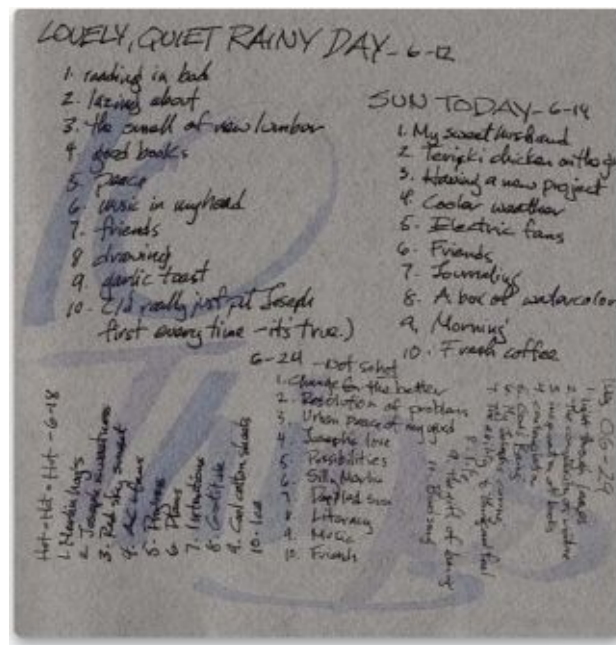 LOVELY, QUIET RAINY DAY - 6-12
1. reading in bed
2. lazing about
3. the smell of new lumber
4. good books
5. peace
6. music in my head
7. friends
8. drawing
9. garlic toast
10. (I'd really just put Joseph
first every time - it's true.)
SUN TODAY - 6-14
1. My sweet husband
2. Teriyaki chicken on the
3. Having a new project
4. Cooler weather
5. Electric fans
6. Friends
7. Journaling
8. A box of watercolor
9. Morning
10. Fresh coffee
6-24 - Not so hot
1. Change for the better
2. Resolution of problem
3. Urban peace of my yard
4. Joseph's love
5. Possibilities
6. Silly Martin
7. Dappled sun
8. Literacy
9. Music
10. Friends
Hot - Hot - Hot - 6-18
1. Martin hugs
2. Joseph
3. Red sky sunset
4. AC + fans
5. Progress
6. Plums
7. Intentions
8. Gratitude
9. Cool cotton sheets
10. Ice
1. light through
2. the complexity of nature
3. inspiration
4. conversation
6. Cool Rainy
9. the gift of being